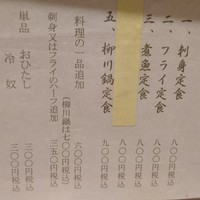 一、刺身定食 八〇〇円税込
二、フライ定食 八〇〇円税込
三、煮魚定食 八〇〇円税込
五、柳川鍋定食 九〇〇円税込
料理の一品追加 六〇〇円税込
(柳川鍋は七〇〇円税込)
刺身又はフライのハーフ追加 三五〇円税込
単品 おひたし 三〇〇円税込
冷奴 三〇〇円税込